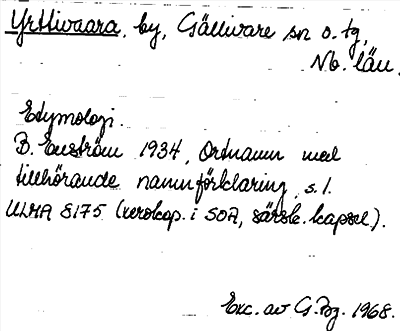 Yrttivaara, by, Gällivare sn o. tg,
Nb. län.
Etymologi.
B. Enström 1934, Ortnamn med
tillhörande namnförklaring, s. 1.
ULMA 8175 (xerokop. i SOA, särsk. kapsel).
Exc. av G. Bg. 1968.